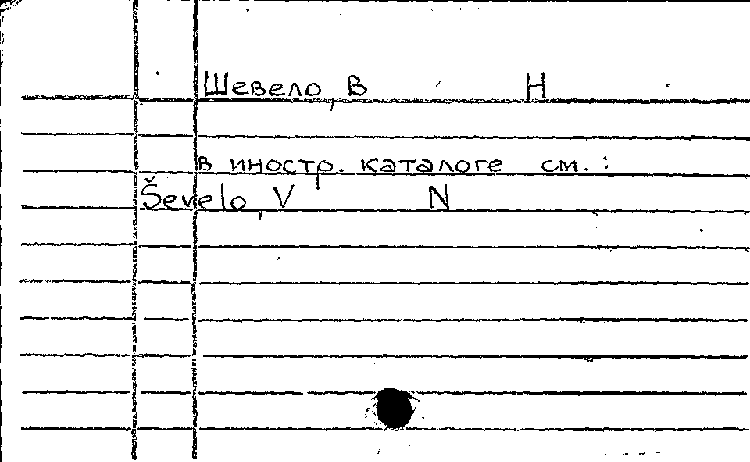 Шевело, В Н
в иностр. каталоге см.:
Ševelo, V N